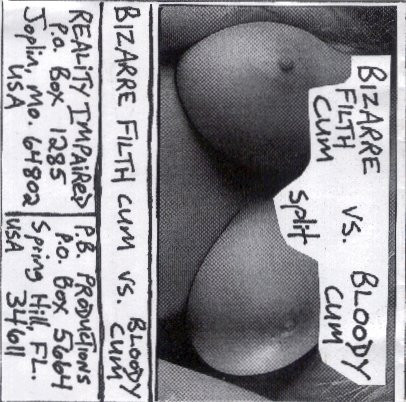 BIZARRE
FILTH
CUM
vs.
split
BLOODY
CUM
BIZARRE FILTH CUM vs. BLOODY
CUM
REALITY IMPAIRED
P.O. BOX 1285
Joplin, Mo. 64802
USA
P.B. PRODUCTIONS
P.O. BOX 5664
Spring Hill, FL.
34611
USA